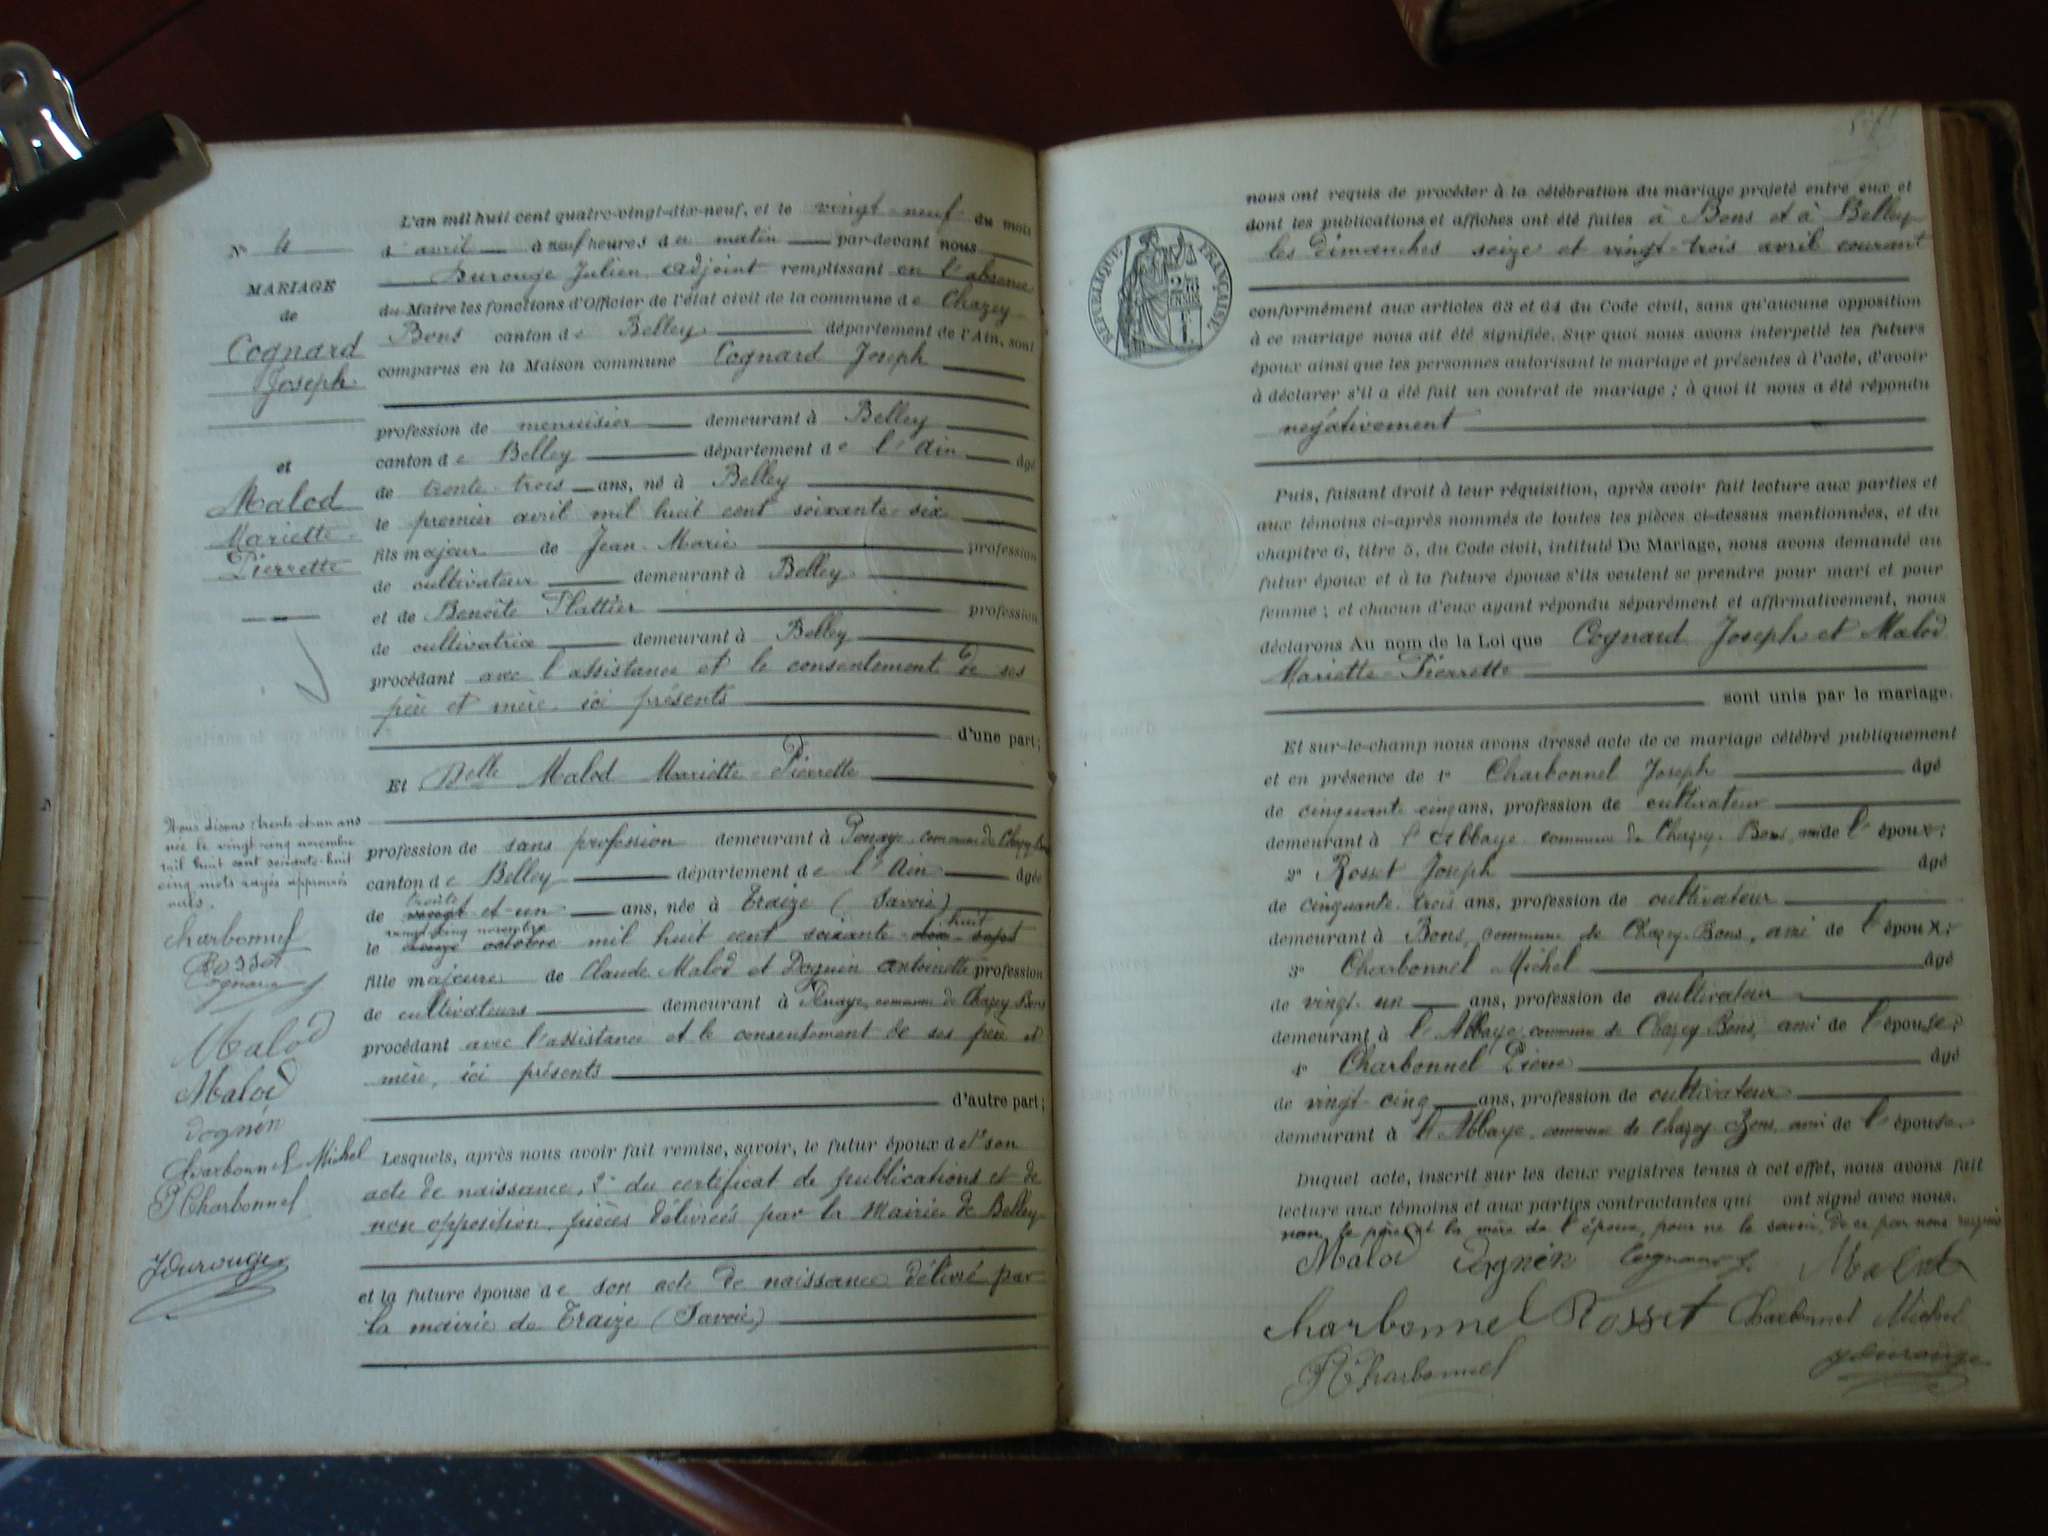 N° 4
MARIAGE
de
Cognard
Joseph
et
Malod
Mariette
Pierrette
Nous disons : trente et un ans
née le vingt-cinq novembre
mil huit cent soixante-huit
cinq mots rayés approuvés
nuls.
Charbonnel
Rosset
Cognard J
Malod
Malod
Dognin
Charbonnel Michel
P Charbonnel
JDurouge
L'an mil huit cent quatre-vingt-dix-neuf, et le vingt-neuf du mois
d'avril à neuf heures du matin par-devant nous
Durouge Julien, adjoint remplissant en l'absence
du Maire les fonctions d'Officier de l'état civil de la commune de Chazey-
Bons canton de Belley département de l'Ain, sont
comparus en la Maison commune Cognard Joseph
profession de menuisier demeurant à Belley
canton de Belley département de l'Ain âgé
de trente-trois ans, né à Belley
le premier avril mil huit cent soixante-six
fils majeur de Jean-Marie profession
de cultivateur demeurant à Belley
et de Benoîte Plattier profession
de cultivatrice demeurant à Belley
procédant avec l'assistance et le consentement de ses
père et mère, ici présents
d'une part;
Et Delle Malod Mariette-Pierrette
profession de sans profession demeurant à commune de Chazey-Bons
canton de Belley département de l'Ain âgée
trente
de vingt-et-un ans, née à Traize (Savoie)
vingt-cinq novembre huit
le octobre mil huit cent soixante-dix-sept
fille majeure de Claude Malod et Dognin Antoinette profession
de cultivateurs demeurant à commune de Chazey-Bons
procédant avec l'assistance et le consentement de ses père et
mère, ici présents
d'autre part;
Lesquels, après nous avoir fait remise, savoir, le futur époux de 1° son
acte de naissance, 2° du certificat de publications et de
non opposition, pièces délivrées par la Mairie de Belley
et la future épouse de son acte de naissance délivré par
la mairie de Traize (Savoie)
nous ont requis de procéder à la célébration du mariage projeté entre eux et
dont les publications et affiches ont été faites à Bons et à Belley
les dimanches seize et vingt-trois avril courant
RÉPUBLIQUE FRANÇAISE
conformément aux articles 63 et 64 du Code civil, sans qu'aucune opposition
à ce mariage nous ait été signifiée. Sur quoi nous avons interpellé les futurs
époux ainsi que les personnes autorisant le mariage et présentes à l'acte, d'avoir
à déclarer s'il a été fait un contrat de mariage ; à quoi il nous a été répondu
négativement
Puis, faisant droit à leur réquisition, après avoir fait lecture aux parties et
aux témoins ci-après nommés de toutes les pièces ci-dessus mentionnées, et du
chapitre 6, titre 5, du Code civil, intitulé Du Mariage, nous avons demandé au
futur époux et à la future épouse s'ils veulent se prendre pour mari et pour
femme ; et chacun d'eux ayant répondu séparément et affirmativement, nous
déclarons Au nom de la Loi que Cognard Joseph et Malod
Mariette-Pierrette
sont unis par le mariage.
Et sur-le-champ nous avons dressé acte de ce mariage célébré publiquement
et en présence de 1° Charbonnel Joseph âgé
de cinquante-cinq ans, profession de cultivateur
demeurant à l'Abbaye commune de Chazey-Bons, ami de l'époux;
2° Rosset Joseph âgé
de cinquante-trois ans, profession de cultivateur
demeurant à Bons, commune de Chazey-Bons, ami de l'époux;
3° Charbonnel Michel âgé
de vingt-un ans, profession de cultivateur
demeurant à l'Abbaye commune de Chazey-Bons, ami de l'épouse;
4° Charbonnel Pierre âgé
de vingt-cinq ans, profession de cultivateur
demeurant à l'Abbaye, commune de Chazey-Bons, ami de l'épouse.
Duquel acte, inscrit sur les deux registres tenus à cet effet, nous avons fait
lecture aux témoins et aux parties contractantes qui ont signé avec nous,
non le père et la mère de l'époux, pour ne le savoir, de ce par nous requis
Malod Dognin Cognard J. Malod
Charbonnel Rosset Charbonnel Michel
P Charbonnel JDurouge